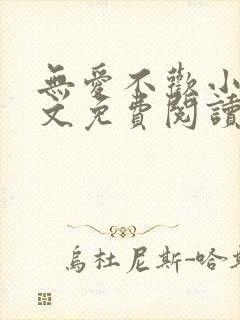 無愛不歡小
文免費閱讀
烏杜尼斯-哈